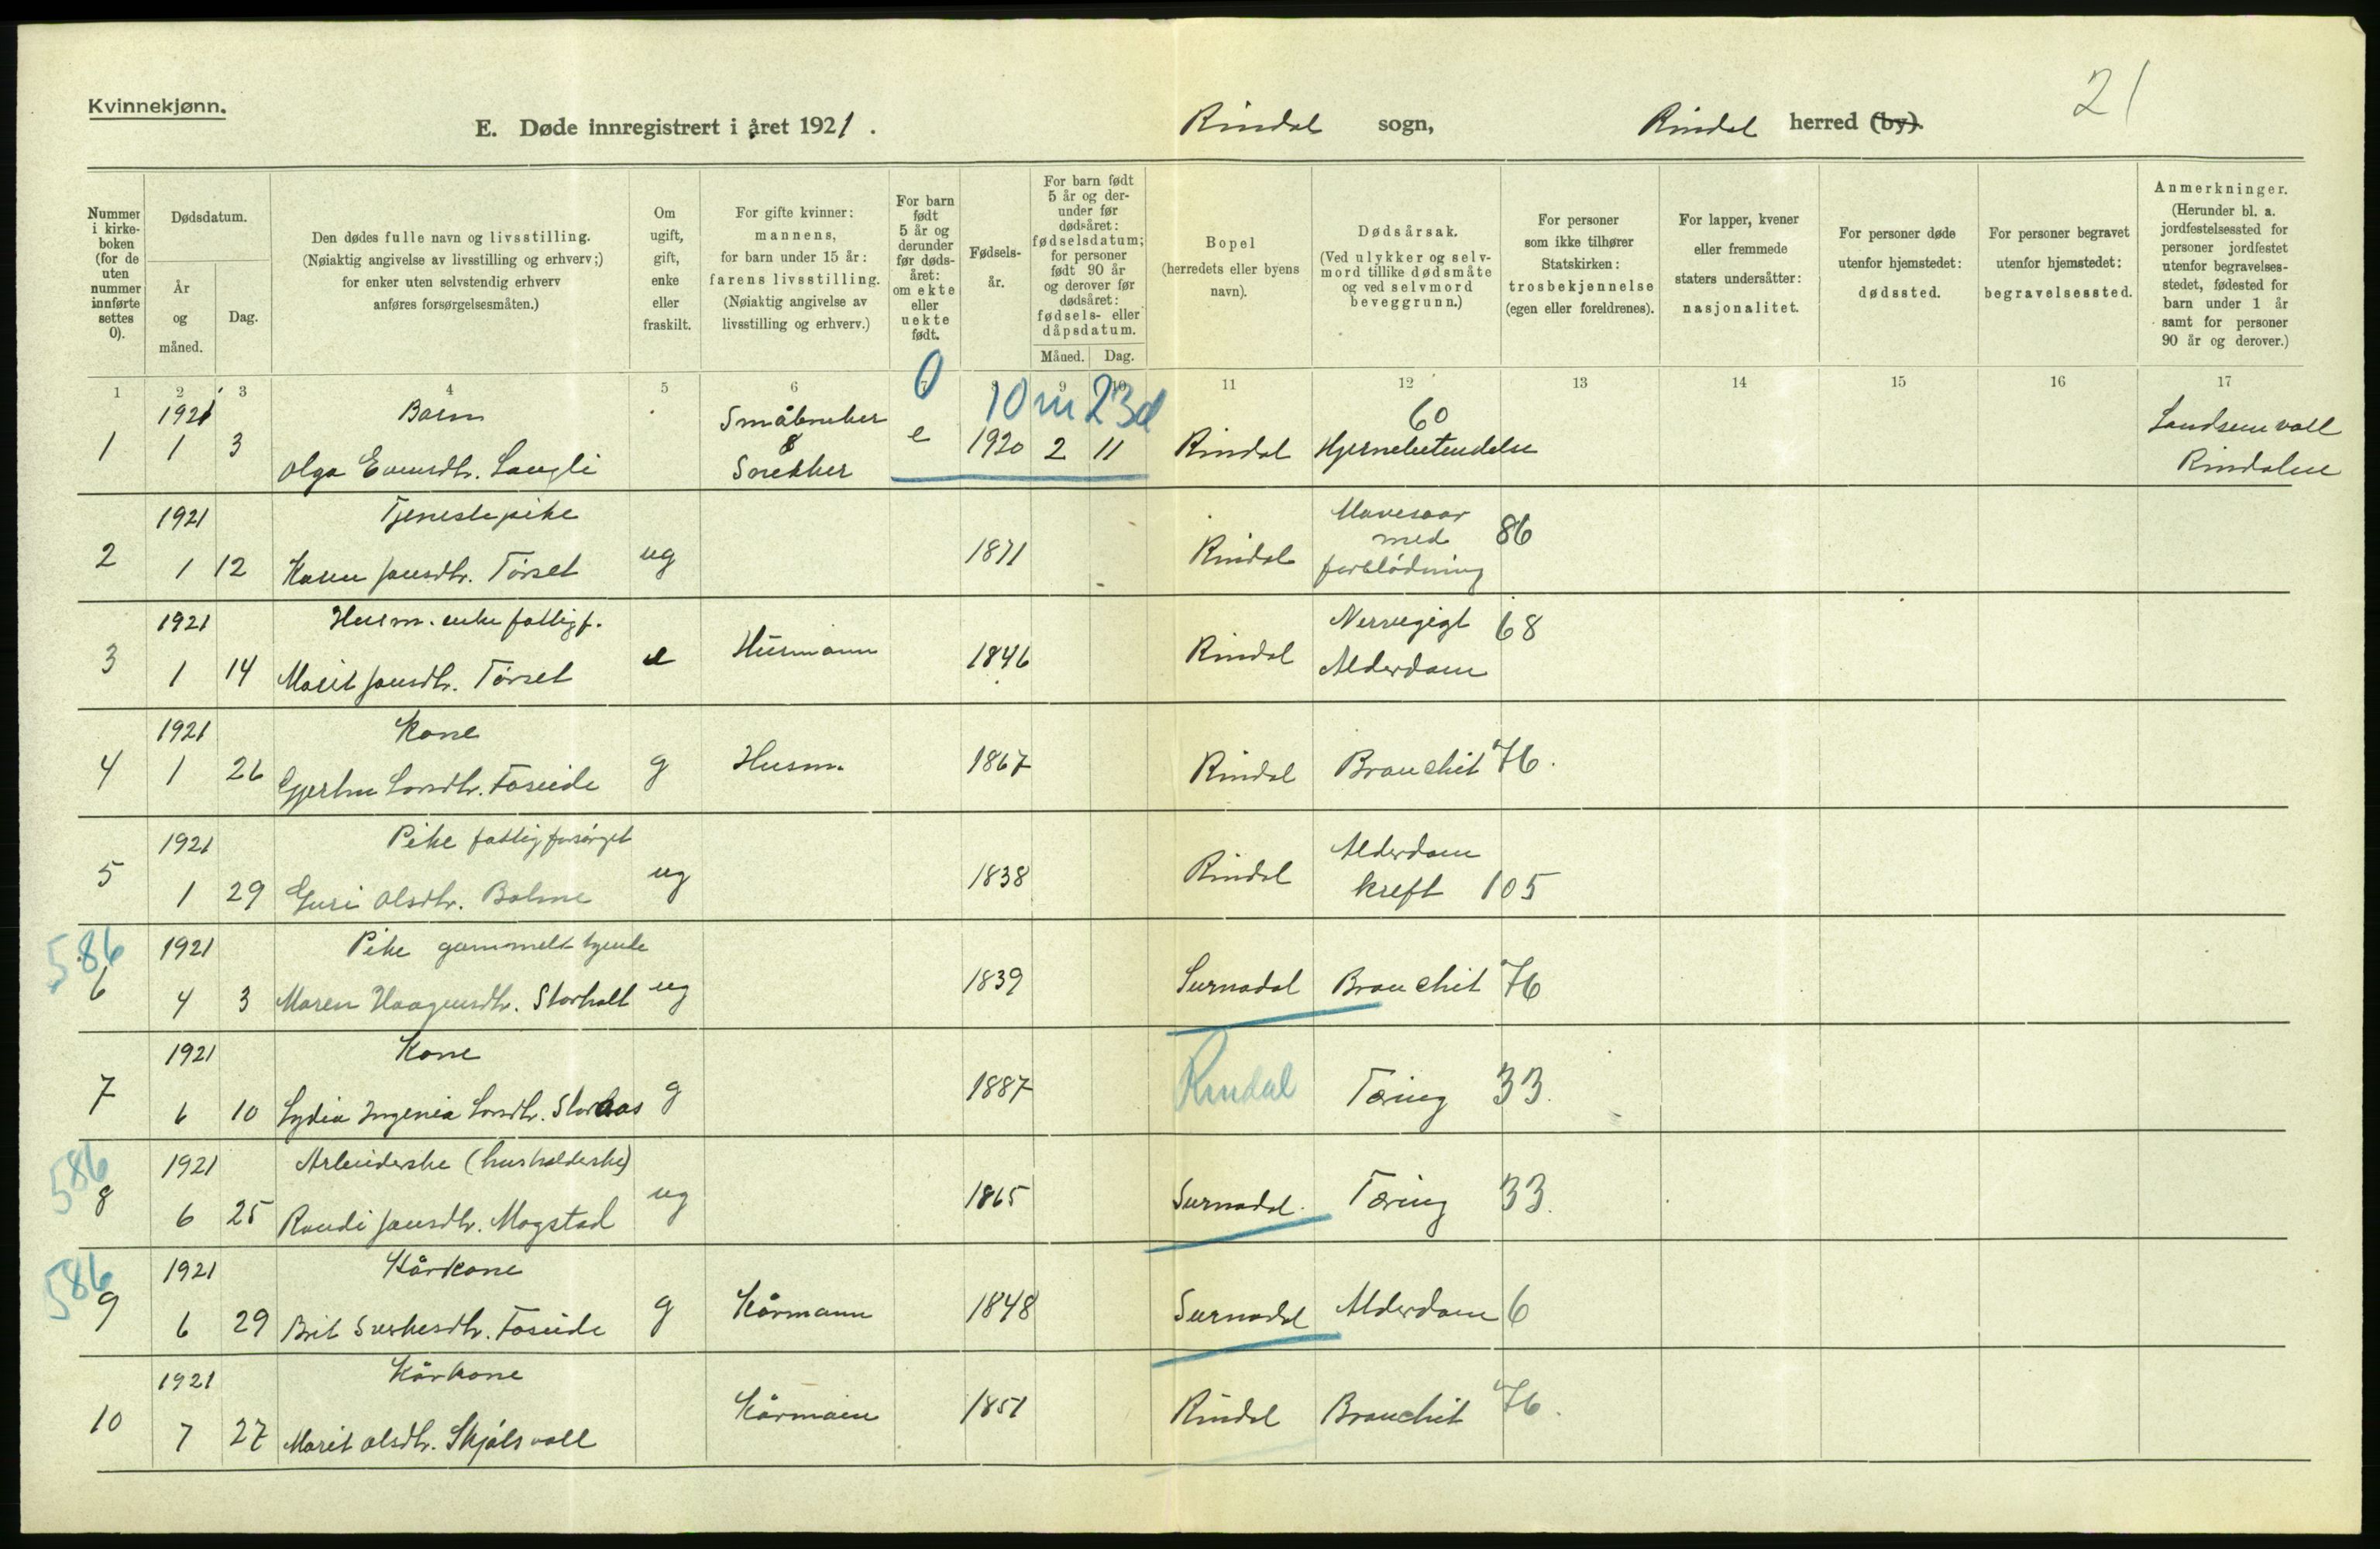 Kvinnekjønn.
E. Døde innregistrert i året 1921.
Rindal sogn,
Rindal herred (by).
21
Nummer i kirke-boken (for de uten nummer innførte settes 0).
Dødsdatum.
År og måned.
Dag.
Den dødes fulle navn og livsstilling.
(Nøiaktig angivelse av livsstilling og erhverv;)
for enker uten selvstendig erhverv
anføres forsørgelsesmåten.)
Om ugift, gift, enke eller fraskilt.
For gifte kvinner:
mannens,
for barn under 15 år:
farens livsstilling.
(Nøiaktig angivelse av
livsstilling og erhverv.)
For barn født 5 år og derunder før døds-året: om ekte eller uekte født.
Fødsels-år.
For barn født 5 år og der-under før dødsåret: fødselsdatum; for personer født 90 år og derover før dødsåret: fødsels- eller dåpsdatum.
Måned. Dag.
Bopel
(herredets eller byens
navn).
Dødsårsak.
(Ved ulykker og selv-
mord tillike dødsmåte
og ved selvmord
beveggrunn.)
For personer
som ikke tilhører
Statskirken:
trosbekjennelse
(egen eller foreldrenes).
For lapper, kvener
eller fremmede
staters undersåtter:
nasjonalitet.
For personer døde
utenfor hjemstedet:
dødssted.
For personer begravet
utenfor hjemstedet:
begravelsessted.
Anmerkninger.
(Herunder bl. a.
jordfestelsessted for
personer jordfestet
utenfor begravelses-
stedet, fødested for
barn under 1 år
samt for personer
90 år og derover.)
1 2 3 4 5 6 7 8 9 10 11 12 13 14 15 16 17
0 10 m 23 d
1921 Barn Småbruker 60 Landsemvall
1 1 3 Olga Evensdtr. Langli & Snekker e 1920 2 11 Rindal Hjernebetendelse Rindalen
1921 Tjenestepike Mavesaar
2 1 12 Karen Jansdtr. Tørset ug 1871 Rindal med forblødning 86
1921 Husm. enke fattigf. Nervegigt 68
3 1 14 Marit Jansdtr. Tørset e Husmann 1846 Rindal Alderdom
1921 Kone
4 1 26 Gjertru Larsdtr. Foseide g Husm. 1867 Rindal Bronchit 76.
1921 Pike fattigforsørget Alderdom
5 1 29 Guri Olsdtr. Bolme ug 1838 Rindal kreft 105
586 1921 Pike gammelt tyende
6 4 3 Maren Haagensdtr. Storholt ug 1839 Surnadal Bronchit 76
1921 Kone
7 6 10 Lydia Ingenia Larsdtr. Storaas g 1887 Rindal Tæring 33.
586 1921 Arbeiderske (husholderske)
8 6 25 Randi Jansdtr. Mogstad ug 1865 Surnadal. Tæring 33.
586 1921 Kårkone
9 6 29 Brit Sverkesdtr. Foseide g Kårmann 1848 Surnadal Alderdom 6
1921 Kårkone
10 7 27 Marit Olsdtr. Skjølsvoll Kårmann 1851 Rindal Bronchit 76.